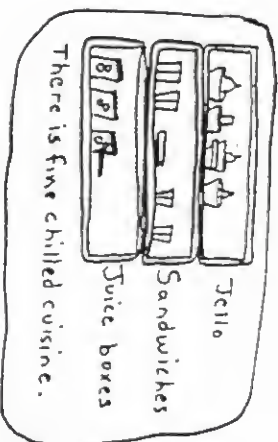 Jello
Sandwiches
Juice boxes
There is fine chilled cuisine.